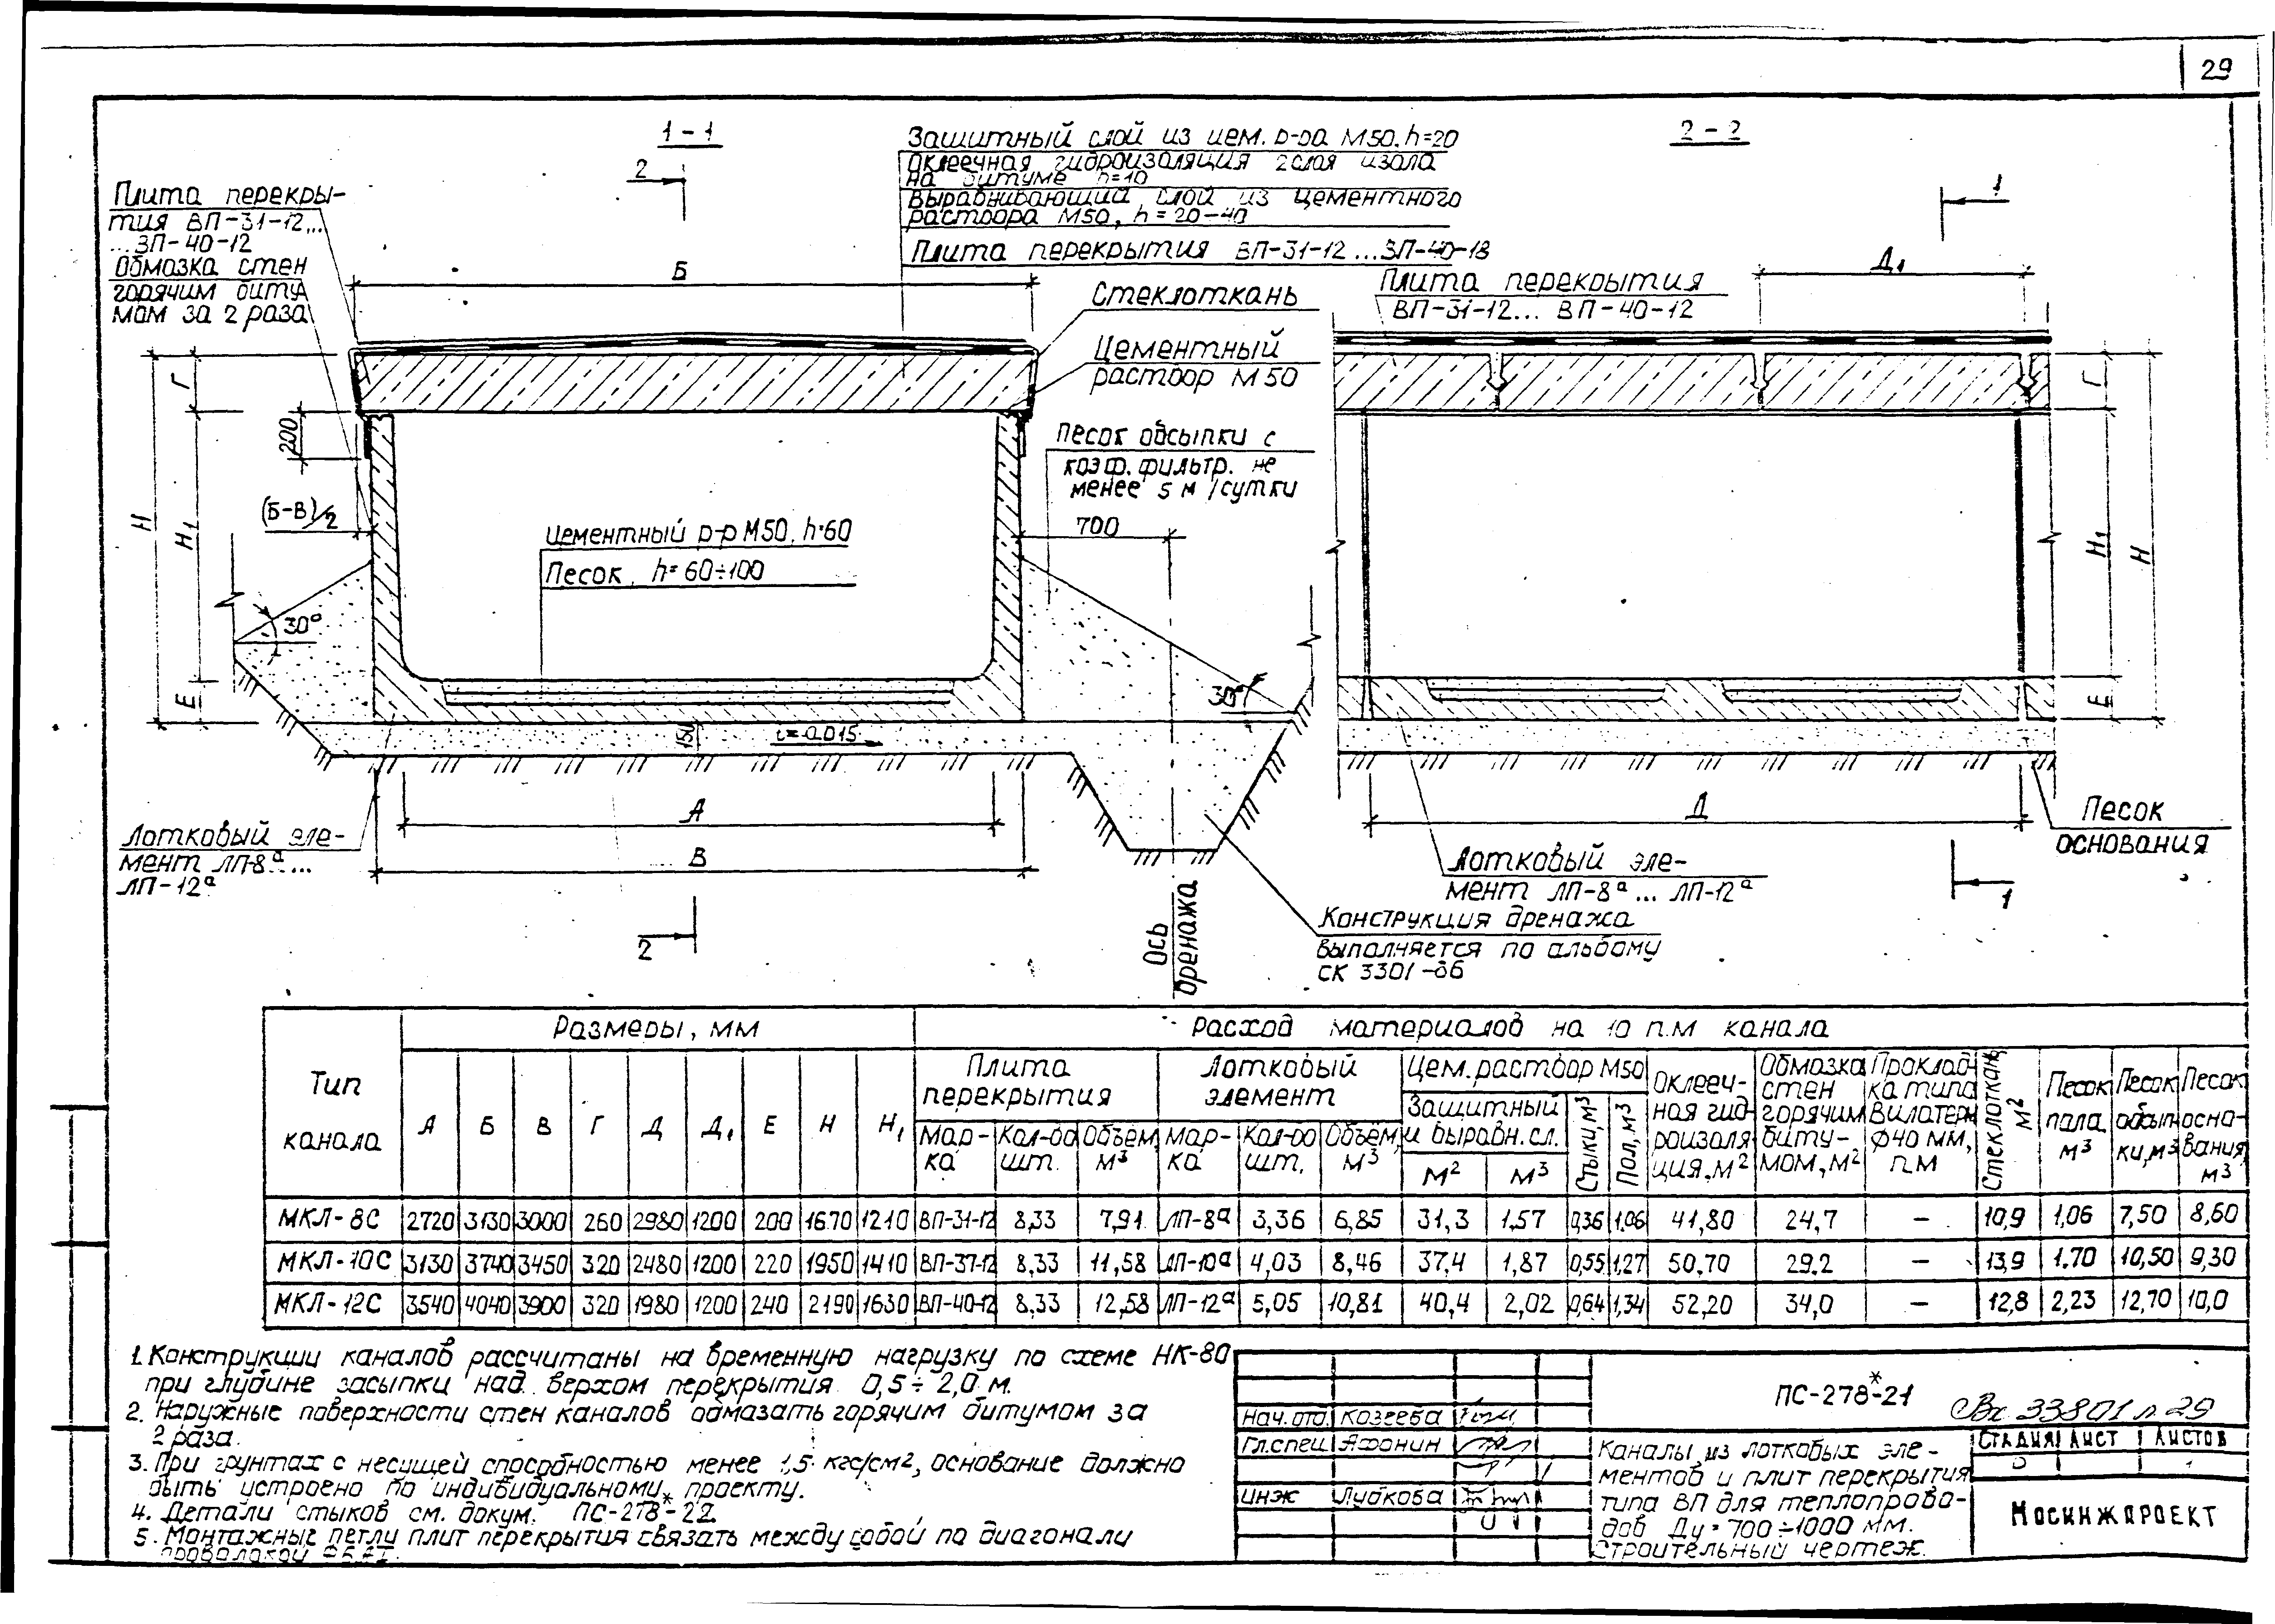 29
1-1
2-2
2
1
Плита перекры-
тия ВП-31-12...
...ЗП-40-12
Обмазка стен
горячим биту
мом за 2 раза
Защитный слой из цем. р-ра М50, h=20
Оклеечная гидроизоляция 2 слоя изола
на битуме h=10
Выравнивающий слой из цементного
раствора М50, h=20-40
Плита перекрытия ВП-31-12...ЗП-40-18
Плита перекрытия
ВП-31-12... ВП-40-12
Б
Д1
Стеклоткань
Цементный
раствор М50
Песок обсыпки с
коэф. фильтр. не
менее 5 м/сутки
700
Г
200
(Б-В)/2
Н
Н1
Е
30°
Цементный р-р М50, h=60
Песок, h=60÷100
30°
150
i=0.015
Г
Н1
Н
Е
А
В
Д
Лотковый эле-
мент ЛП-8а...
ЛП-12а
2
Ось
дренажа
Лотковый эле-
мент ЛП-8а... ЛП-12а
Песок
основания
1
Конструкция дренажа
выполняется по альбому
СК 3301-86
Тип канала
Размеры, мм
Расход материалов на 10 п.м канала
А Б В Г Д Д1 Е Н Н1
Плита перекрытия
Мар-ка Кол-во шт. Объём, м3
Лотковый элемент
Мар-ка Кол-во шт. Объём, м3
Цем. раствор М50
Защитный и выравн. сл.
м2 м3
Стыки, м3
Пол, м3
Оклееч-ная гид-роизоля-ция, м2
Обмазка стен горячим биту-мом, м2
Проклад-ка типа Вилатерм ф40 мм, п.м
Стеклоткань м2
Песок пола м3
Песок обсып-ки, м3
Песок осно-вания м3
МКЛ-8С 2720 3130 3000 260 2980 1200 200 1670 1210 ВП-31-12 8,33 7,91 ЛП-8а 3,36 6,85 31,3 1,57 0,36 1,06 41,80 24,7 — 10,9 1,06 7,50 8,60
МКЛ-10С 3130 3740 3450 320 2480 1200 220 1950 1410 ВП-37-12 8,33 11,58 ЛП-10а 4,03 8,46 37,4 1,87 0,55 1,27 50,70 29,2 — 13,9 1,70 10,50 9,30
МКЛ-12С 3540 4040 3900 320 1980 1200 240 2190 1630 ВП-40-12 8,33 12,58 ЛП-12а 5,05 10,81 40,4 2,02 0,64 1,34 52,20 34,0 — 12,8 2,23 12,70 10,0
1. Конструкции каналов рассчитаны на временную нагрузку по схеме НК-80
при глубине засыпки над верхом перекрытия 0,5÷2,0 м.
2. Наружные поверхности стен каналов обмазать горячим битумом за
2 раза.
3. При грунтах с несущей способностью менее 1,5 кгс/см2, основание должно
быть устроено по индивидуальному проекту.
4. Детали стыков см. докум. ПС-278*-22.
5. Монтажные петли плит перекрытия связать между собой по диагонали
проволокой
Нач. отд. Козеева
Гл. спец Афонин
инж Лубкова
ПС-278*-21
Вх 33801 л 29
Каналы из лотковых эле-
ментов и плит перекрытия
типа ВП для теплопрово-
дов Ду=700÷1000 мм.
Строительный чертеж.
Стадия Лист Листов
Р 1
Мосинжпроект